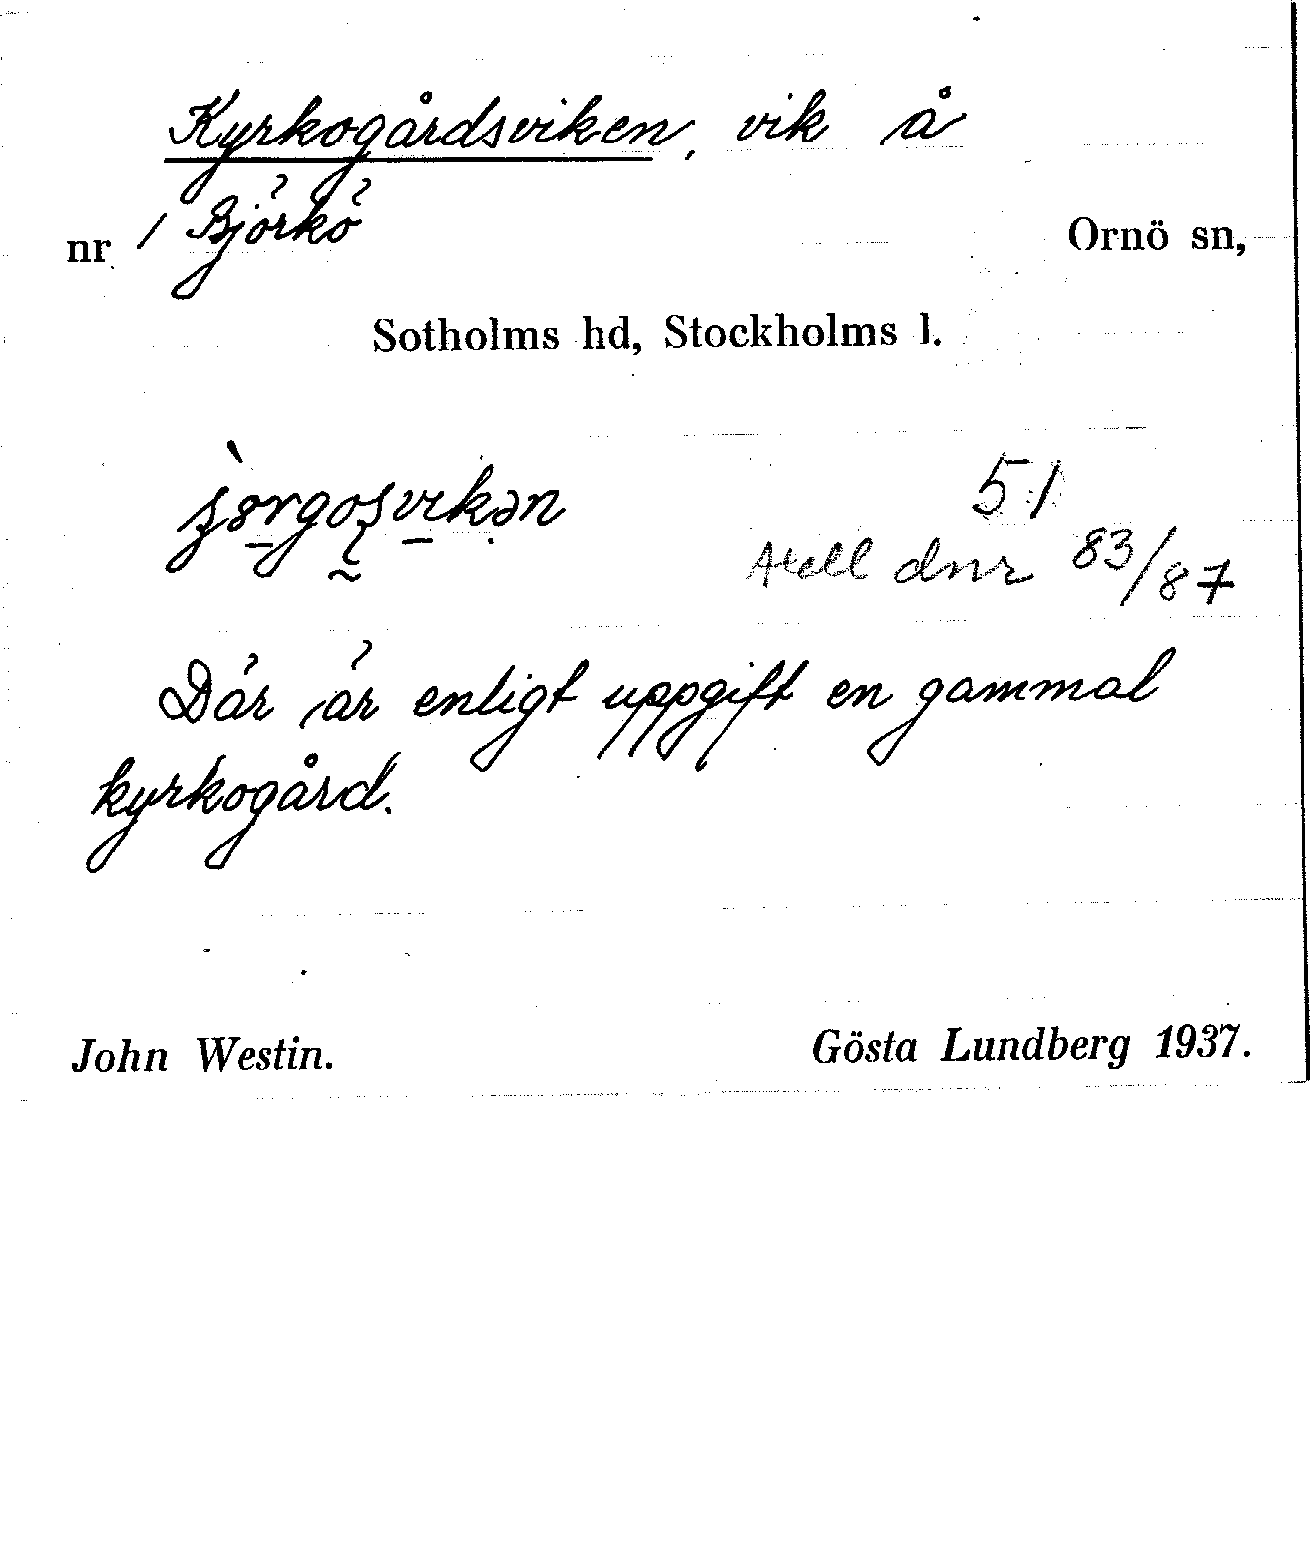 Kyrkogårdsviken, vik å
nr 1 Björkö Ornö sn,
Sotholms hd, Stockholms l.
51
dnr 83/87
Där är enligt uppgift en gammal
kyrkogård.
John Westin. Gösta Lundberg 1937.